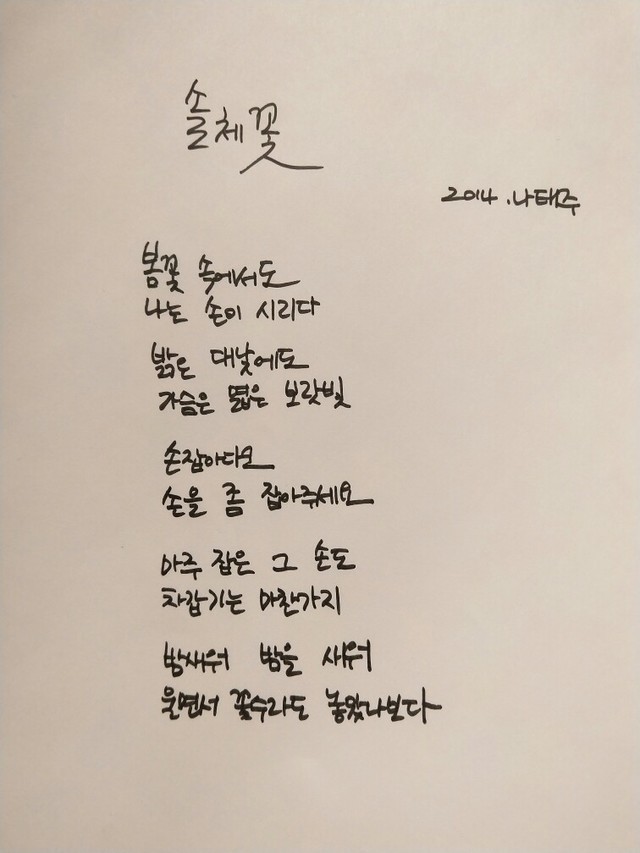 솔체꽃
2014. 나태주
봄꽃 속에서도
나는 손이 시리다
밝은 대낮에도
가슴은 엷은 보랏빛
손잡아다오
손을 좀 잡아주세요
아주 잡은 그 손도
차갑기는 마찬가지
밤새워 밤을 새워
울면서 꽃수라도 놓았나보다